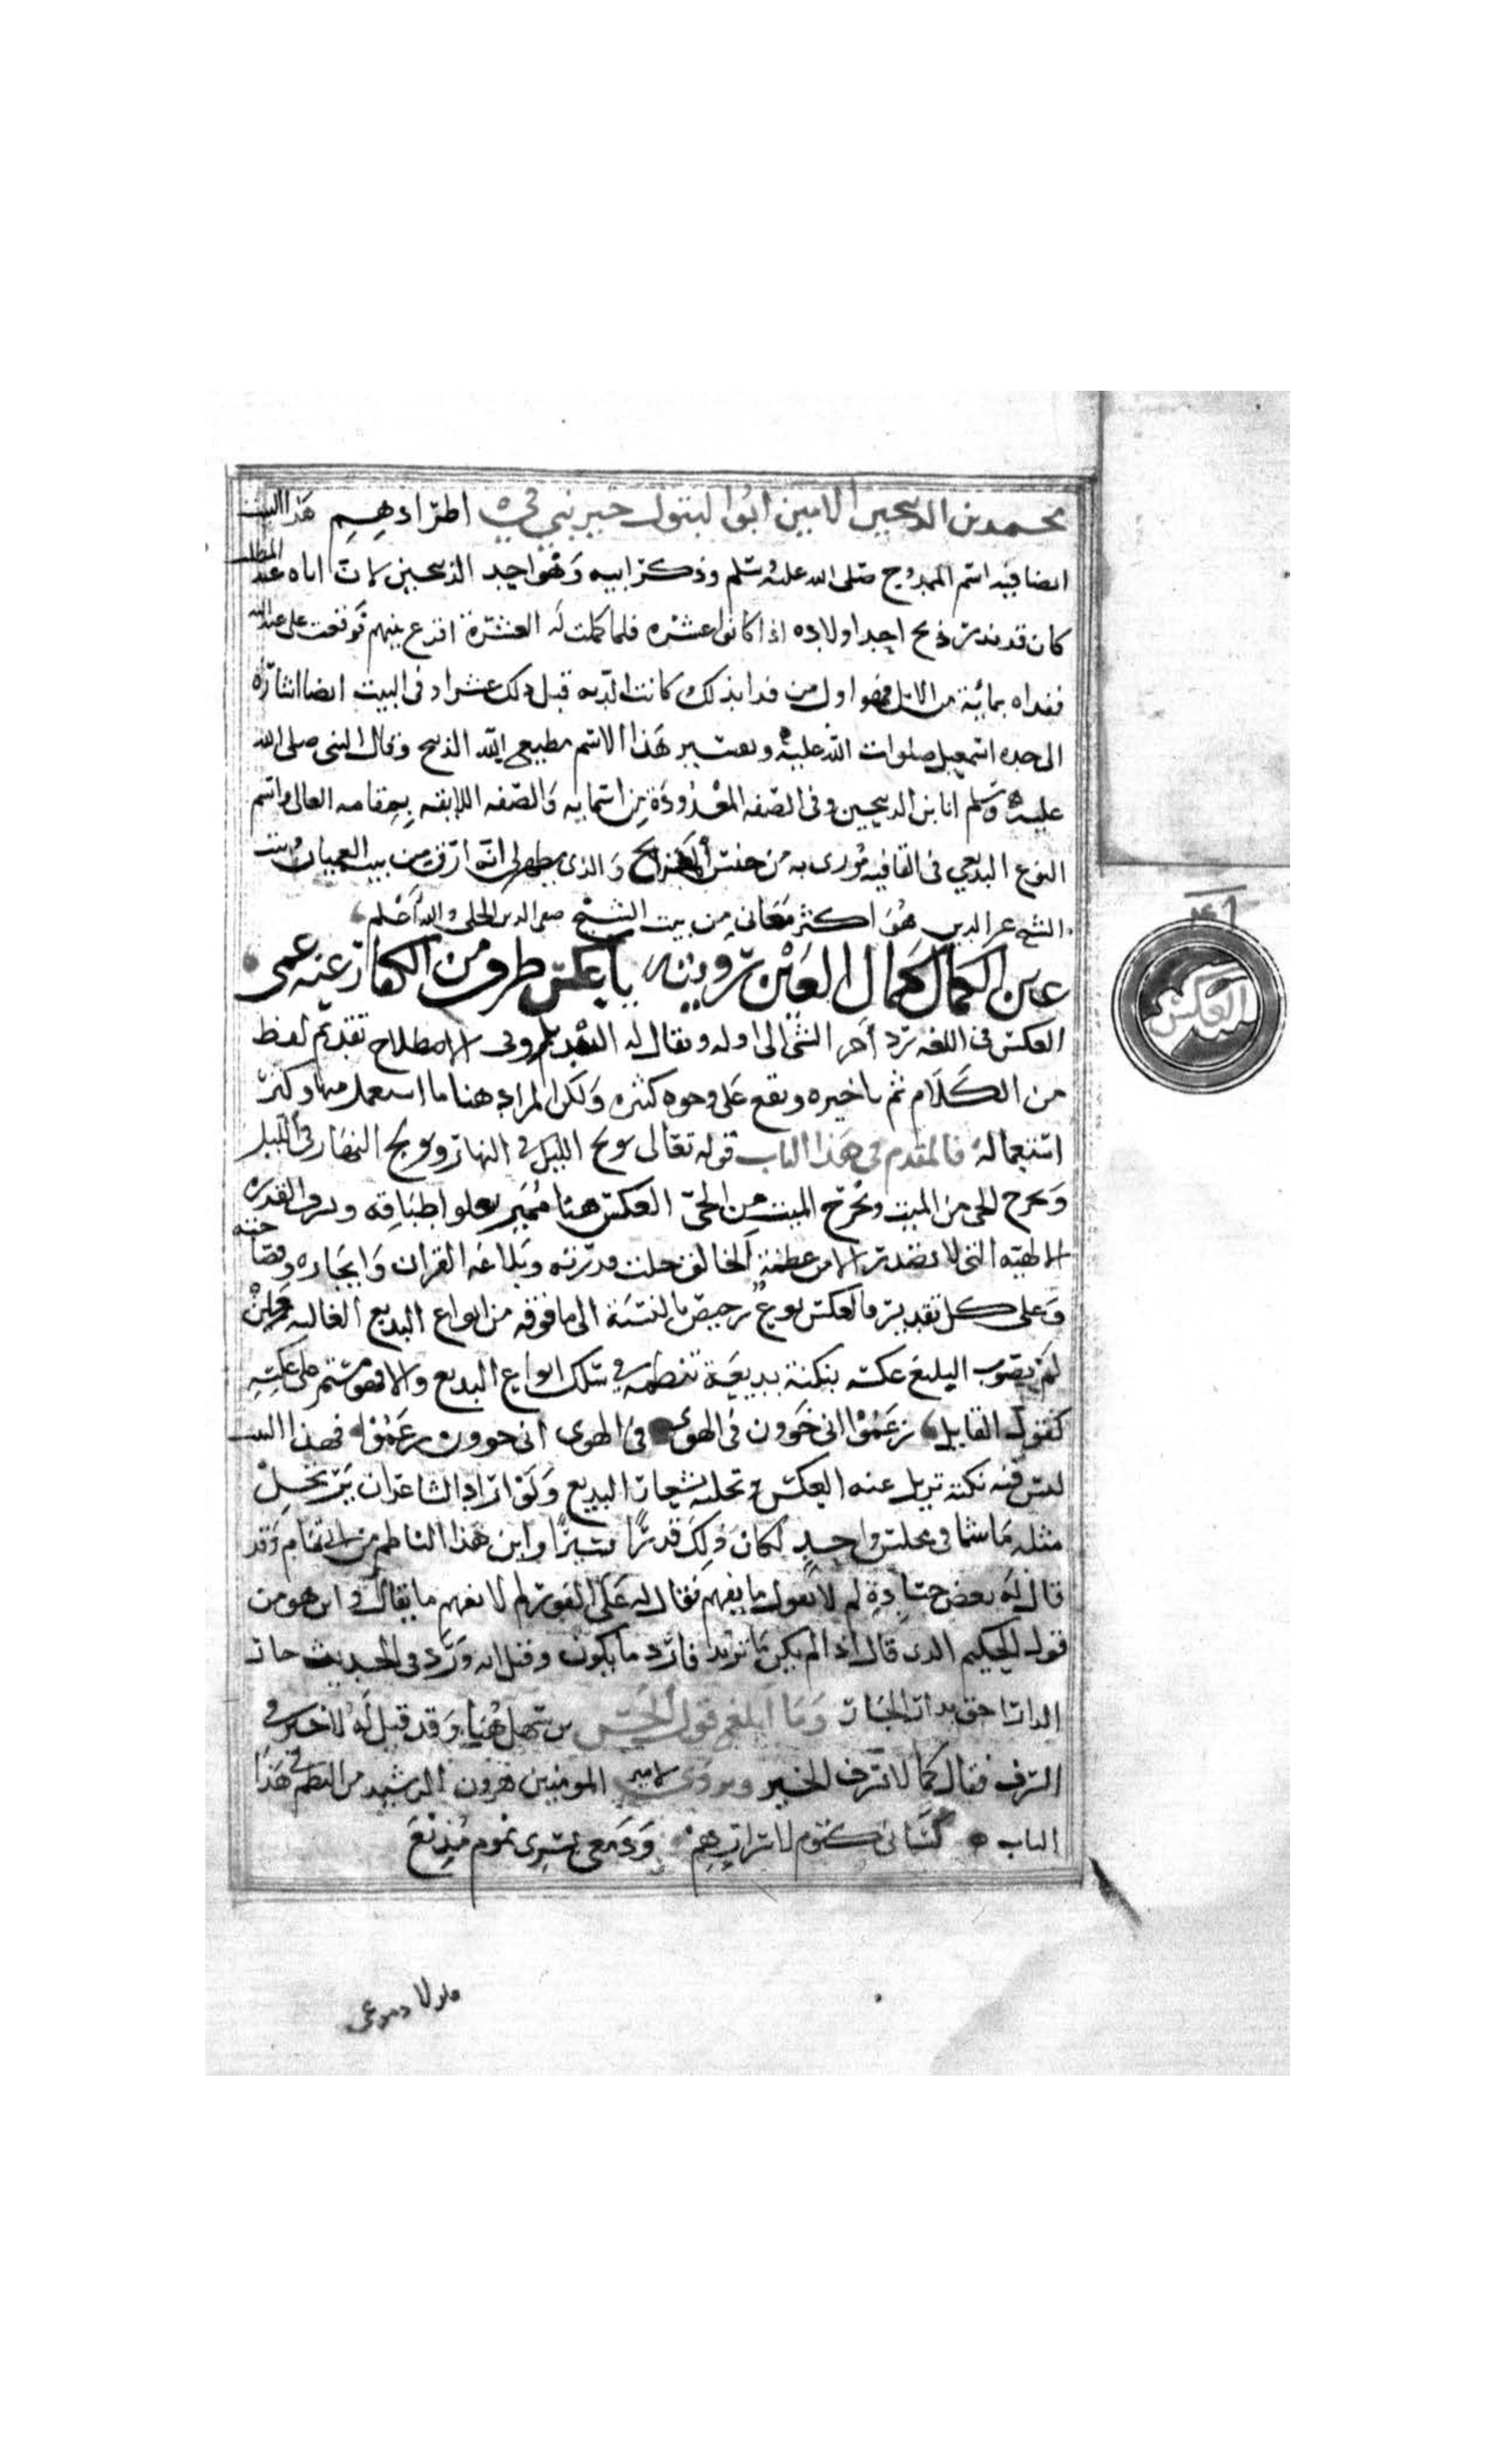 محمد بن الذبيحين الامين ابو البتول خير نبي في اطرادهم هذا البيت
ايضا فيه اسم الممدوح صلى الله عليه وسلم وذكر ابيه وهو احد الذبيحين لان اباه عبد المطلب
كان قد نذر ذبح احد اولاده اذا كانوا عشره فلما كملت له العشرة اقرع بينهم فوقعت على عبد الله
ففداه بمائة من الابل فهو اول من فدا بذلك كانت الدية قبل ذلك عشرا وفى البيت ايضا اشارة
الى جده اسمعيل صلوات الله عليه ويعتبر هذا الاسم مطيع الله الذبيح وقال النبى صلى الله
عليه وسلم انا ابن الذبيحين وفى الصفه المعدودة من اسمايه والصفه اللايقه بمقامه العالى واسم
النوع البديعي فى القافيه مورى به من جنس المديح والذى يظهر لى انوار من بيت العميان وبيت
الشيخ عز الدين هو اكثر معانى من بيت الشيخ صفى الدين الحلى والله اعلم
عين الكمال كمال العين رويته يا عكس طرف من الكفار عنه عمى
العكس فى اللغه رد آخر الشئ الى اوله ويقال له التبديل وفى الاصطلاح تقديم لفظ
من الكلام ثم تاخيره ويقع على وجوه كثيره ولكن المراد هنا ما استعمل منها وكثر
استعماله فالمقدم فى هذا الباب قوله تعالى يولج الليل فى النهار ويولج النهار فى الليل
ويخرج الحى من الميت ويخرج الميت من الحى العكس هنا مميز بعلو اطباقه وشرف القدره
الالهيه التى لا تصدر الا من عظمة الخالق جلت قدرته وبلاغه القران وايجازه وفصاحته
وعلى كل تقدير فالعكس نوع رخيص بالنسبة الى ما فوقه من انواع البديع الغاليه فان
لم يصوب البليغ عكسه بنكتة بديعية تنظمه فى سلك انواع البديع والا فهو مستمر على عكسه
كقول القايل زعموا انى خوون فى الهوى فى الهوى انى خوون زعموا فهذا البيت
ليس فيه نكته تزيل عنه العكس وتحليه بشعار البديع ولو اراد الشاعر ان يرتجل
مثله ما شا فى مجلس واحد لكان ذلك قدرا يسيرا واين هذا الناظم من ابى تمام وقد
قال له بعض حساده لم لا تقول ما يفهم فقال له على الفور لم لا تفهم ما يقال واين هو من
قول الحكيم الذى قال اذا لم يكن ما تريد فارد ما يكون وقيل انه ورد فى الحديث جار
الدار احق بدار الجار وما ابلغ قول الحسن بن سهل هنا وقد قيل له لا خير فى
السرف فقال كما لا سرف الخير ويروى لامير المومنين هرون الرشيد من النظم فى هذا
الباب لسانى كتوم لاسرارهم ودمعى بسرى نموم مذيع
العكس
١٤٦
فلولا دموعى